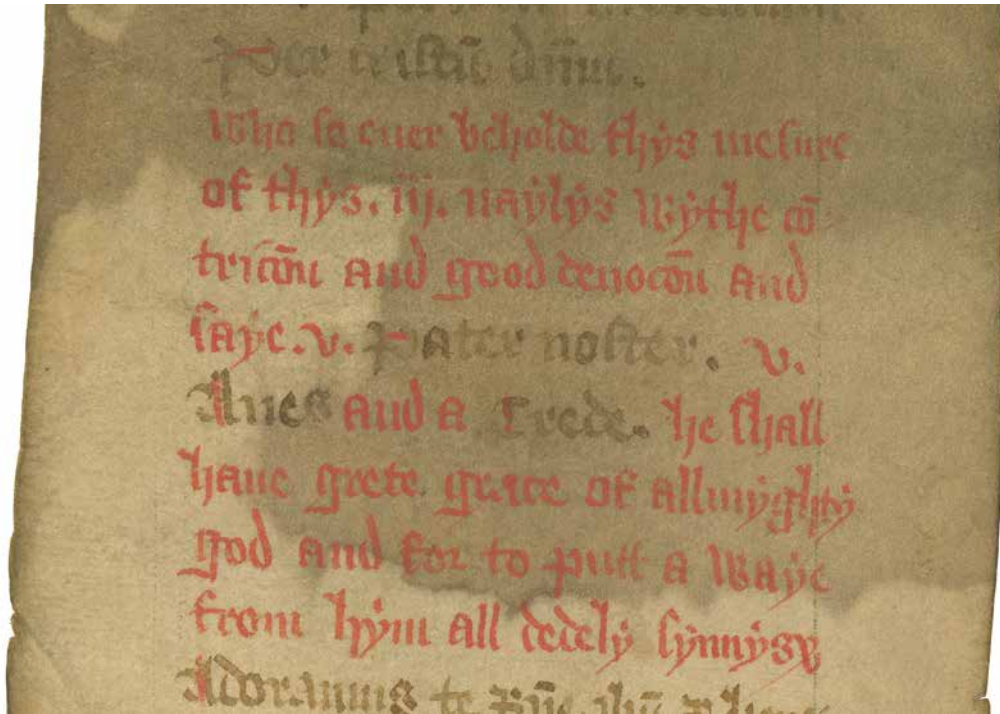 Per cristū dn̄m.
Who so euer beholde thys mesure
of thys .iij. naylys wythe cō
tricōn and good deuocōn and
saye .v. Pater noster. v.
Aues and a Crede. he shall
haue grete grace of allmyghty
god and for to putt a waye
from hym all dedely synnys
Adoramus te